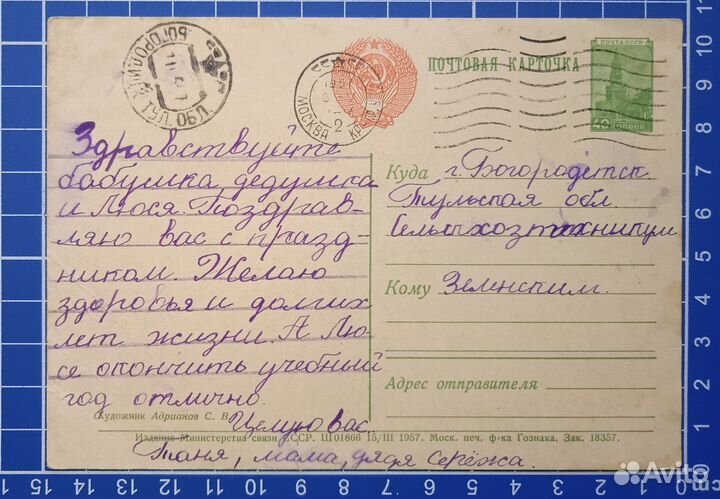 ПОЧТОВАЯ КАРТОЧКА
ПОЧТА СССР
40 КОПЕЕК
БОГОРОДИЦК ТУЛ. ОБЛ.
МОСКВА
2
Здравствуйте
бабушка, дедушка
и Люся. Поздрав-
ляю вас с празд-
ником. Желаю
здоровья и долгих
лет жизни. А Лю-
се окончить учебный
год отлично.
Целую вас.
Таня, мама, дядя Серёжа.
Куда г. Богородетск
Тульская обл.
Сельхозтехникум
Кому Земнским.
Адрес отправителя
Художник Адрианов С. В.
Издание Министерства связи СССР. Ш 01866 15/III 1957. Моск. печ. ф-ка Гознака. Зак. 18357.
15 14 13 12 11 10 9 8 7 6 5 4 3 2 1 0
1 2 3 4 5 6 7 8 9 10 11
Avito